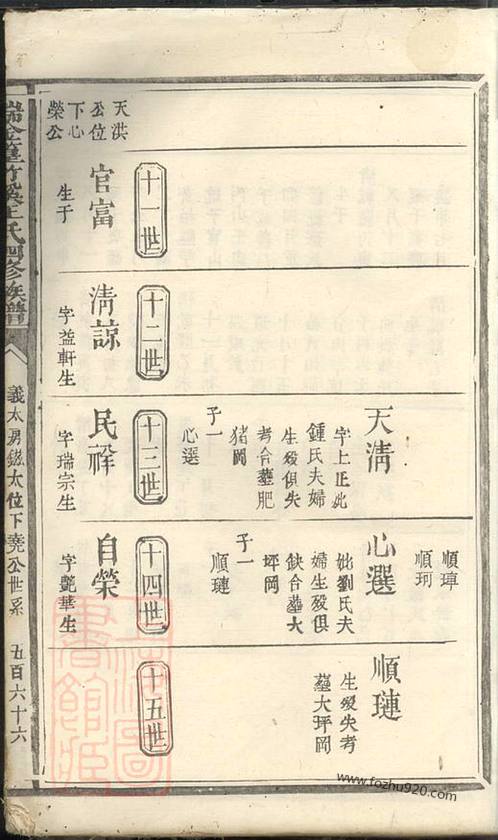 順琸
順珂
天清
字上正妣
鍾氏夫婦
生殁俱失
考合墓肥
猪岡
子一
心選
心選
妣劉氏夫
婦生殁俱
缺合墓大
坪岡
子一
順璉
順璉
生殁失考
墓大坪岡
十一世
十二世
十三世
十四世
十五世
天洪
公位
下心
榮公
官富
生于
清諒
字益軒生
民祥
字瑞宗生
自榮
字艷華生
瑞金
竹溪王氏四修族譜
義太房鎡太位下堯公世系
五百六十六
上海圖
書館藏
www.fozhu920.com